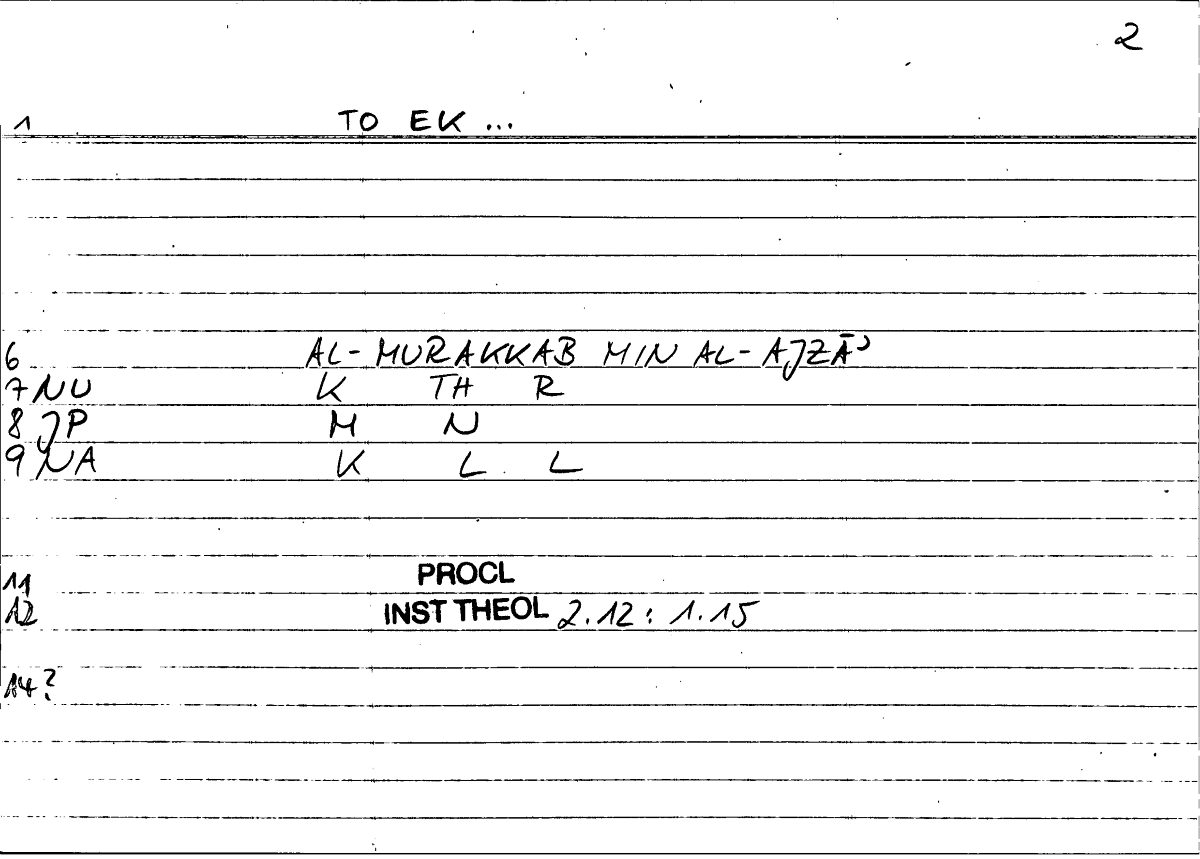 2
1 TO EK ...
6 AL- MURAKKAB MIN AL- AJZĀʾ
7 NU K TH R
8 JP M N
9 NA K L L
11 PROCL
12 INST THEOL 2.12: 1.15
14?